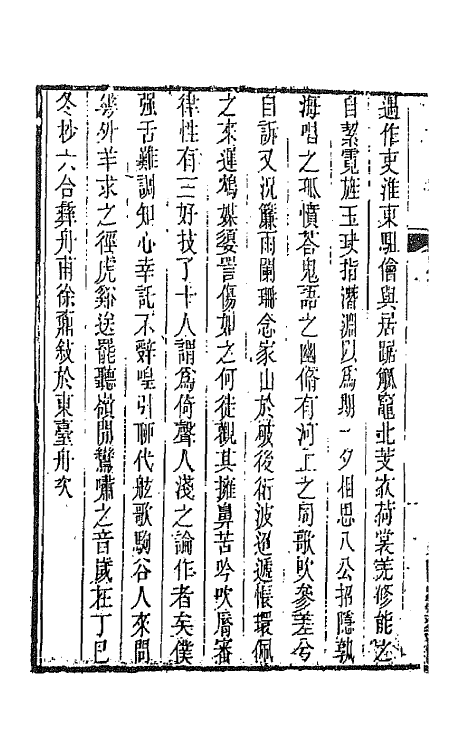 過作吏淮東駔儈與居踞觚竈北芰衣荷裳羌修能之
自絜霓旌玉𫘝指潛淵以爲期一夕相思八公招隱孰
海唱之孤憤荅鬼語之幽脩有河上之同歌吹參差兮
自訴又況簾雨闌珊念家山於破後衍波迢遞悵環佩
之來遲鴆媒嬃詈傷如之何徒觀其擁鼻苦吟吹脣審
律性有三好技了十人謂爲倚聲人淺之論作者矣僕
强舌難調知心幸託不辭喤引聊代舷歌駒谷人來問
幾外羊求之徑虎谿送罷聽嶺間鸞嘯之音歲在丁巳
冬抄六合彝舟甫徐鼒敘於東臺舟次